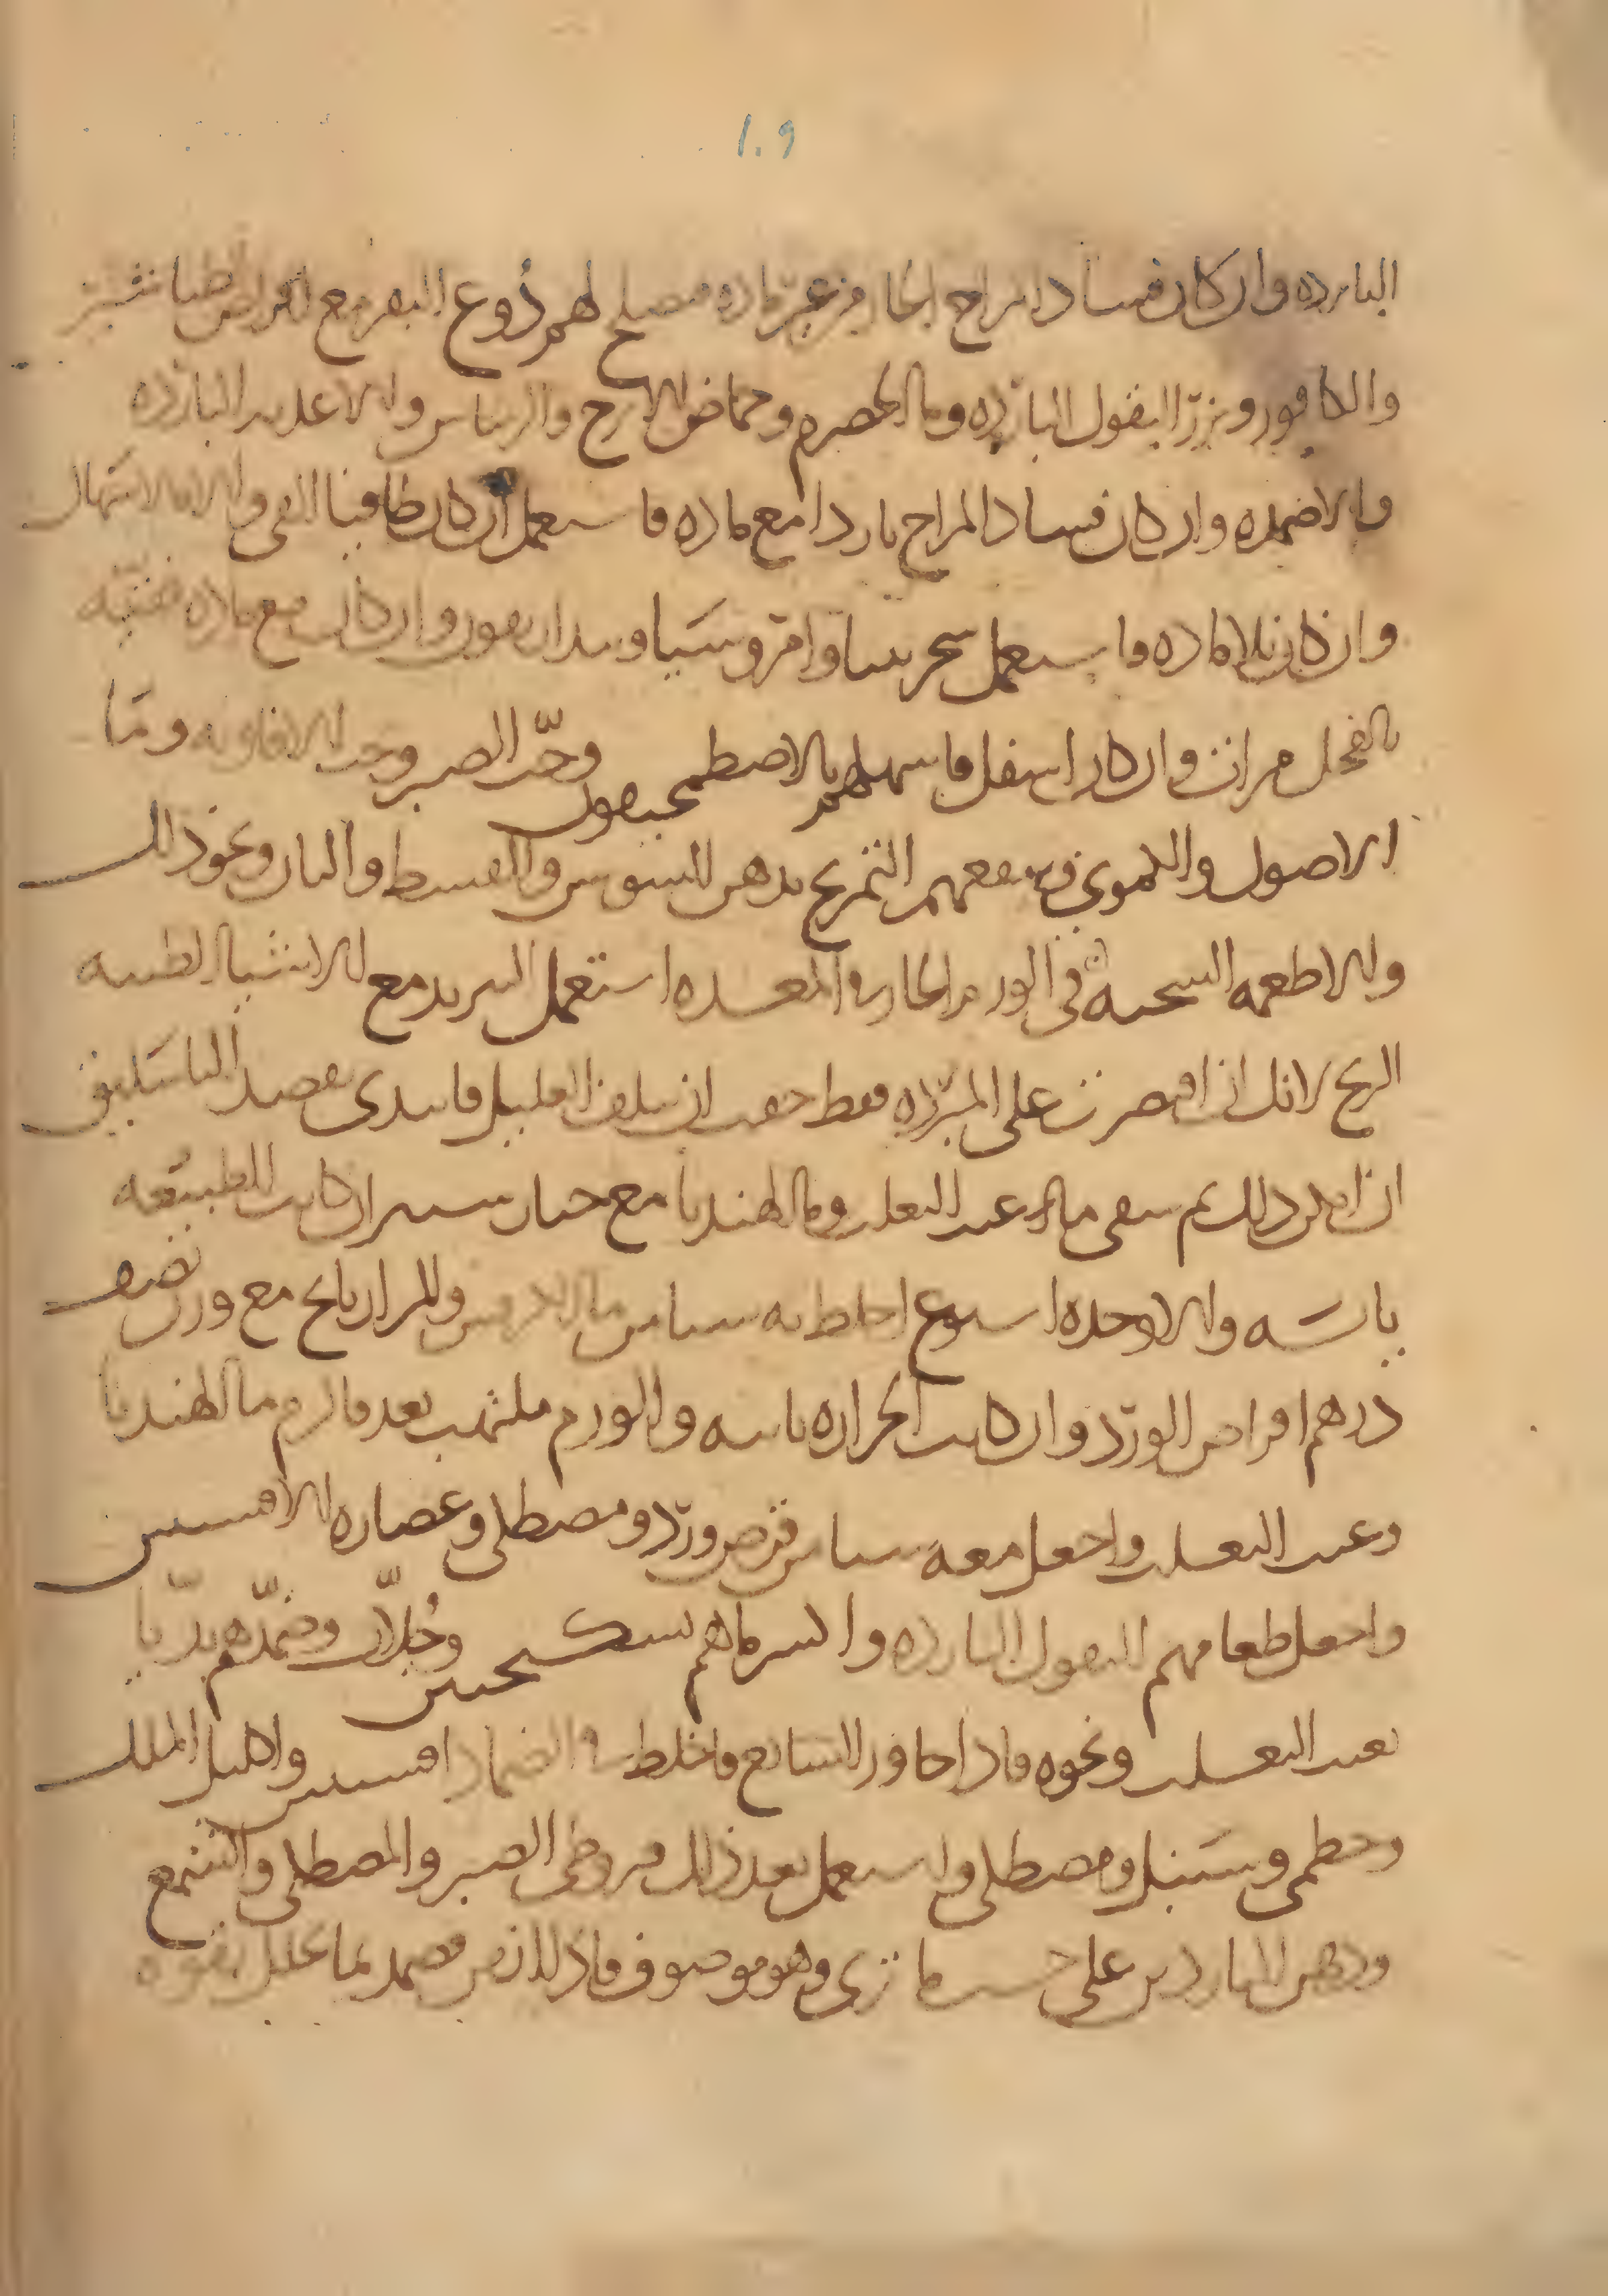 ١٠٩
البارده وان كان فساد المزاج الحار من غير ماده فيصلح لهم دُوع البقر مع اقراص طباشير
والكافور وبزر البقول البارده وما الحصرم وحماض الاترج والريباس والاغديه البارده
والاضمده وان كان فساد المزاج باردا مع ماده فاستعمل ان كان طافيا القي والاسهال
وان كان بلا ماده فاستعمل سجرينيا وامروسيا وسدار يقون وان كانت مع ماده فقيه
بالفجل مرات وان كان اسفل فاسهلهم بالاصطمخيقون وحبّ الصبر وحب الافاويه وما
الاصول واللموي وينفعهم التمريخ بدهن السوسن والقسط والبان ونحو ذلك
والاطعمه السخنه في الورم الحار في المعده استعمل التبريد مع الاشيا الطيبه
الريح لانك ان اقتصرت على المبرده فقط خفت ان يتلف العليل فابتدي بفصد الباسليق
ان امكن ذلك ثم يسقى ما عنب الثعلب وما الهندبا مع خيار سنبر ان كانت الطبيعه
يابسه والا وحده اسبوع اخلط به شيا من ما الكرفس والرازيانج مع وزن نصف
درهم اقراص الورد وان كانت الحراره ثابته والورم ملتهب بعد فالزم ما الهندبا
وعنب الثعلب واجعل معه شيا من قرص ورد ومصطكى وعصاره الافسنتين
واجعل طعامهم البقول البارده واسرماهم سكنجبين وجُلّاب وضمّدهم بديّا
بعنب الثعلب ونحوه فاذا جاوز السابع فاخلط في الضماد افسنتين واكليل الملك
وخطمى وسنبل ومصطكى واستعمل بعد ذلك قيروطى الصبر والمصطكى والشمع
ودهن الناردين على حسب ما ترى وهو موصوف فاذا ازمن فضمد بما يحلل بقوه